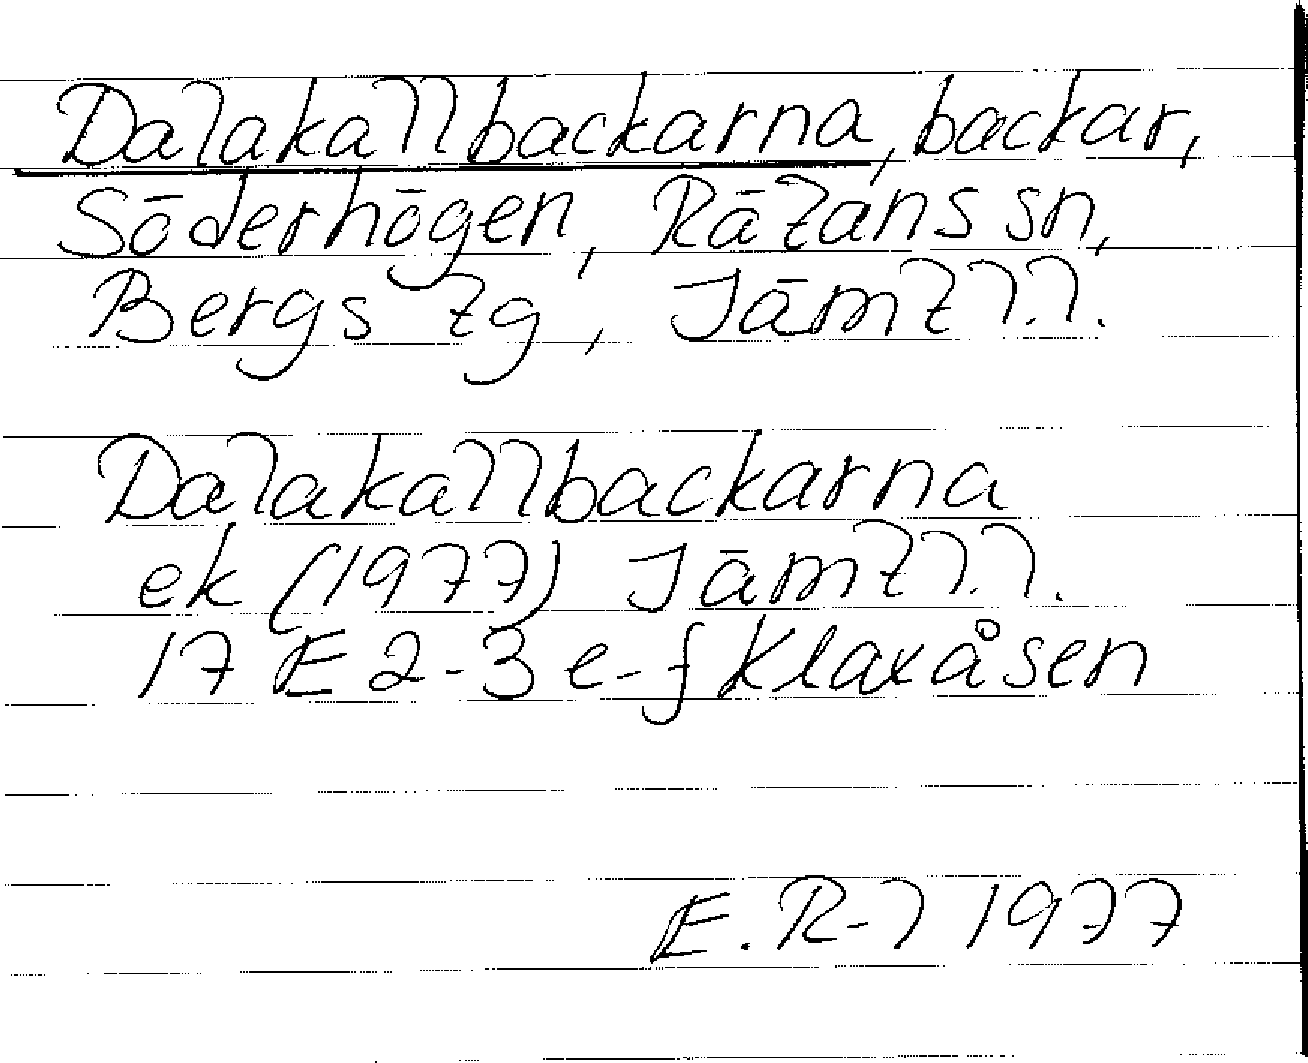 Dalakallbackarna, backar,
Söderhögen, Rätans sn,
Bergs tg, Jämtl.l.
Dalakallbackarna
ek (1977) Jämtl.l.
17 E 2-3 e-f Klaxåsen
E. R-l 1977